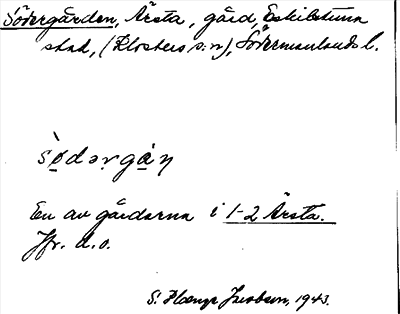 Södergården, Årsta, gård, Eskilstuna
stad, (Klosters s:n), Södermanlands l.
sö̀dərgά̣ɳ
En av gårdarna i 1-2 Årsta.
Jfr. d.o.
S. Hænge Jacobsen, 1943.